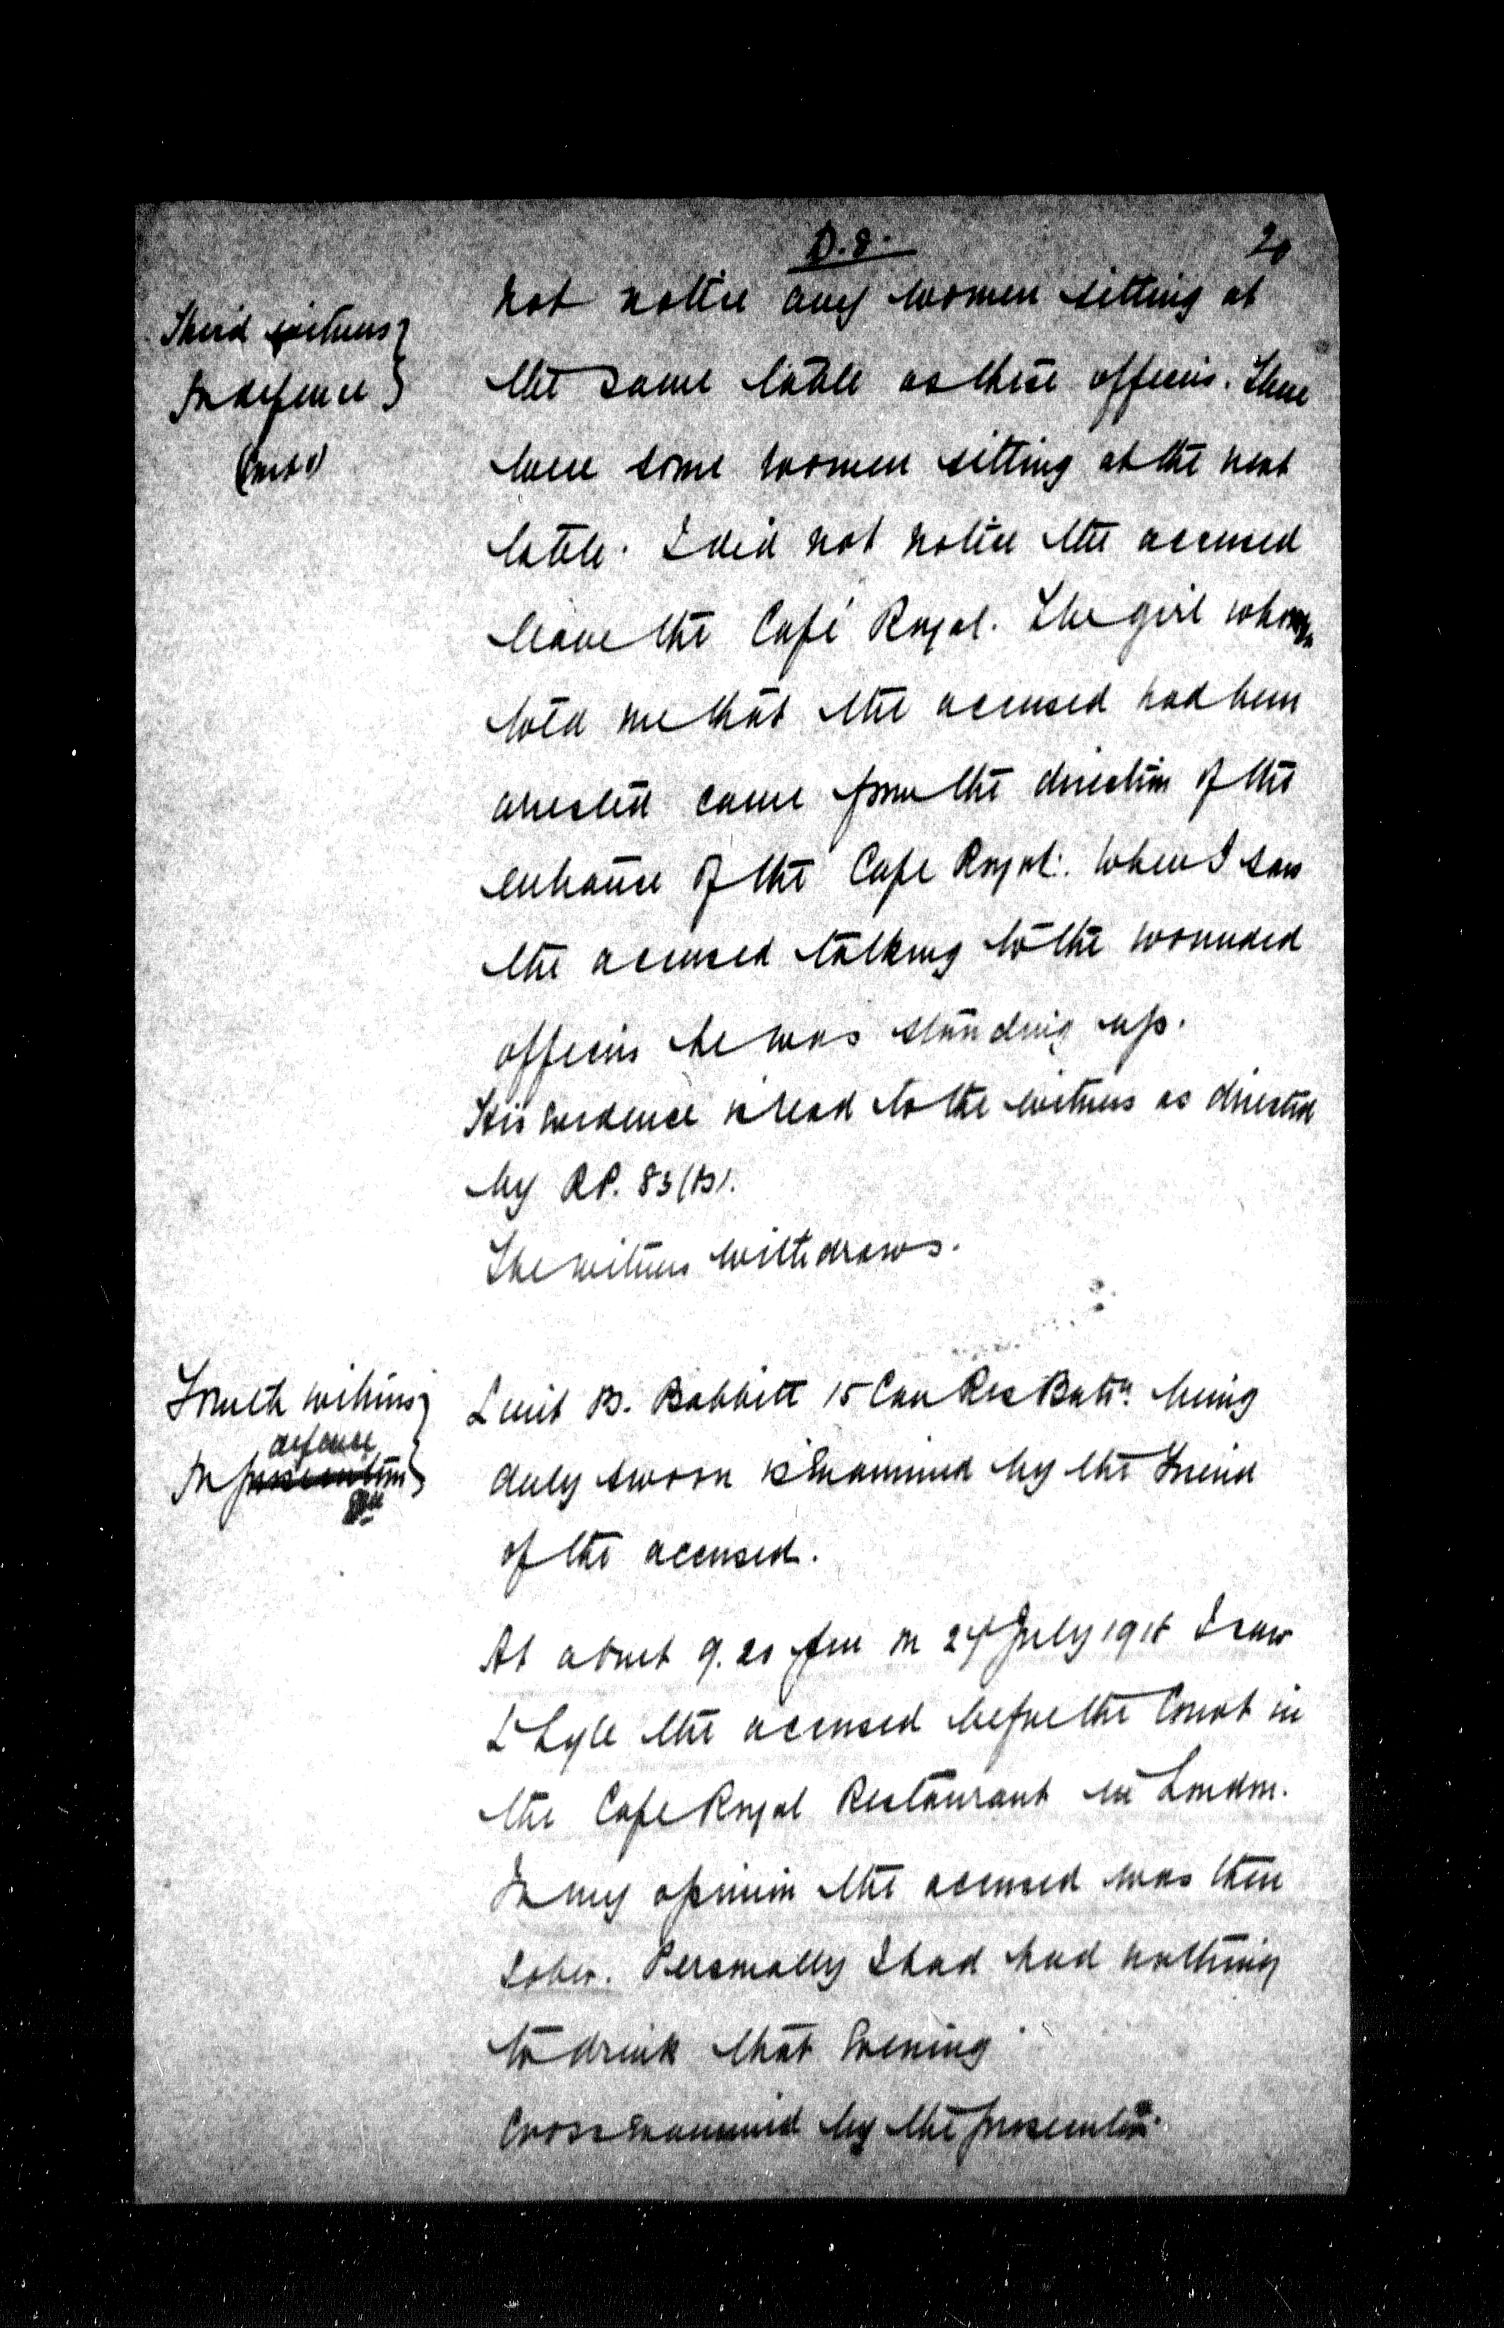 D.8.
20
Third witness
for defence
(contd)
not notice any women sitting at
the same table as these officers. There
were some women sitting at the next
table. I did not notice the accused
leave the Café Royal. The girl who
told me that the accused had been
arrested came from the direction of the
entrance of the Cafe Royal. When I saw
the accused talking to the wounded
officers he was standing up.
His evidence is read to the witness as directed
by RP. 83(B).
The witness withdraws.
Fourth witness
defence
for prosecution
Lieut B. Babbitt 15 Can Res Battn. being
duly sworn is examined by the friend
of the accused.
At about 9.20 pm on July 1918 I saw
Lt Lyle the accused before the Court in
the Cafe Royal Restaurant in London.
In my opinion the accused was then
sober. Personally I had had nothing
to drink that evening.
Cross examined by the prosecution.